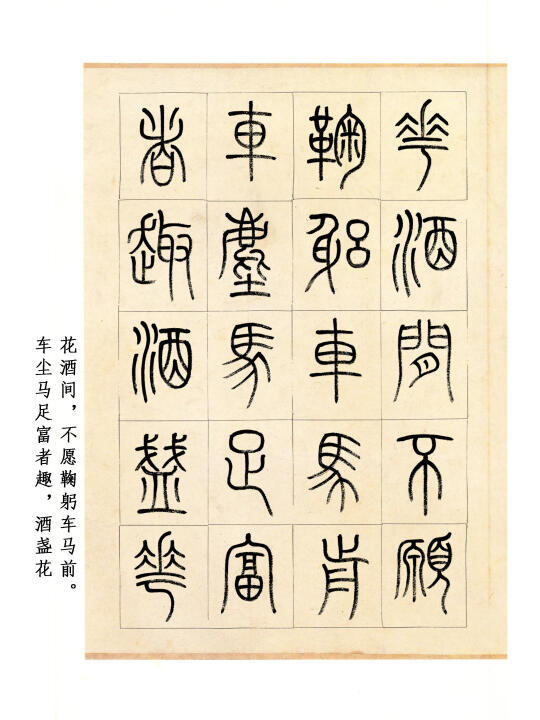 華酒間不願
鞠躬車馬歬
車塵馬足富
者趣酒盞華
花酒间，不愿鞠躬车马前。
车尘马足富者趣，酒盏花